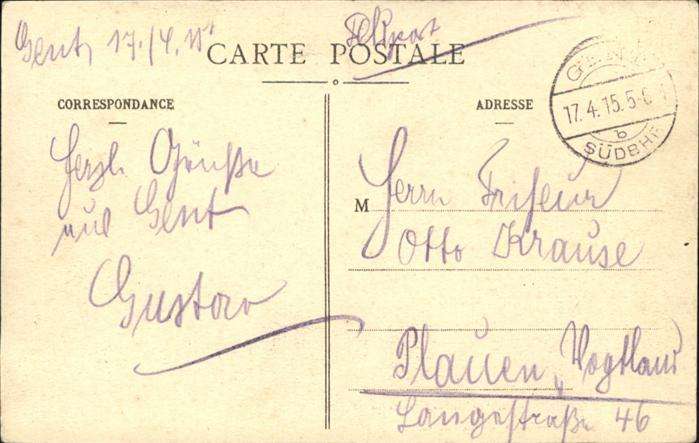 Gent, 17./4. 15.
Feldpost
CARTE POSTALE
GENT
17.4.15.5-6
b
SÜDBHF
CORRESPONDANCE
ADRESSE
Herzl. Grüße
aus Gent
Gustav
M
Herrn Friseur
Otto Krause
Plauen, Vogtland
Langestraße 46